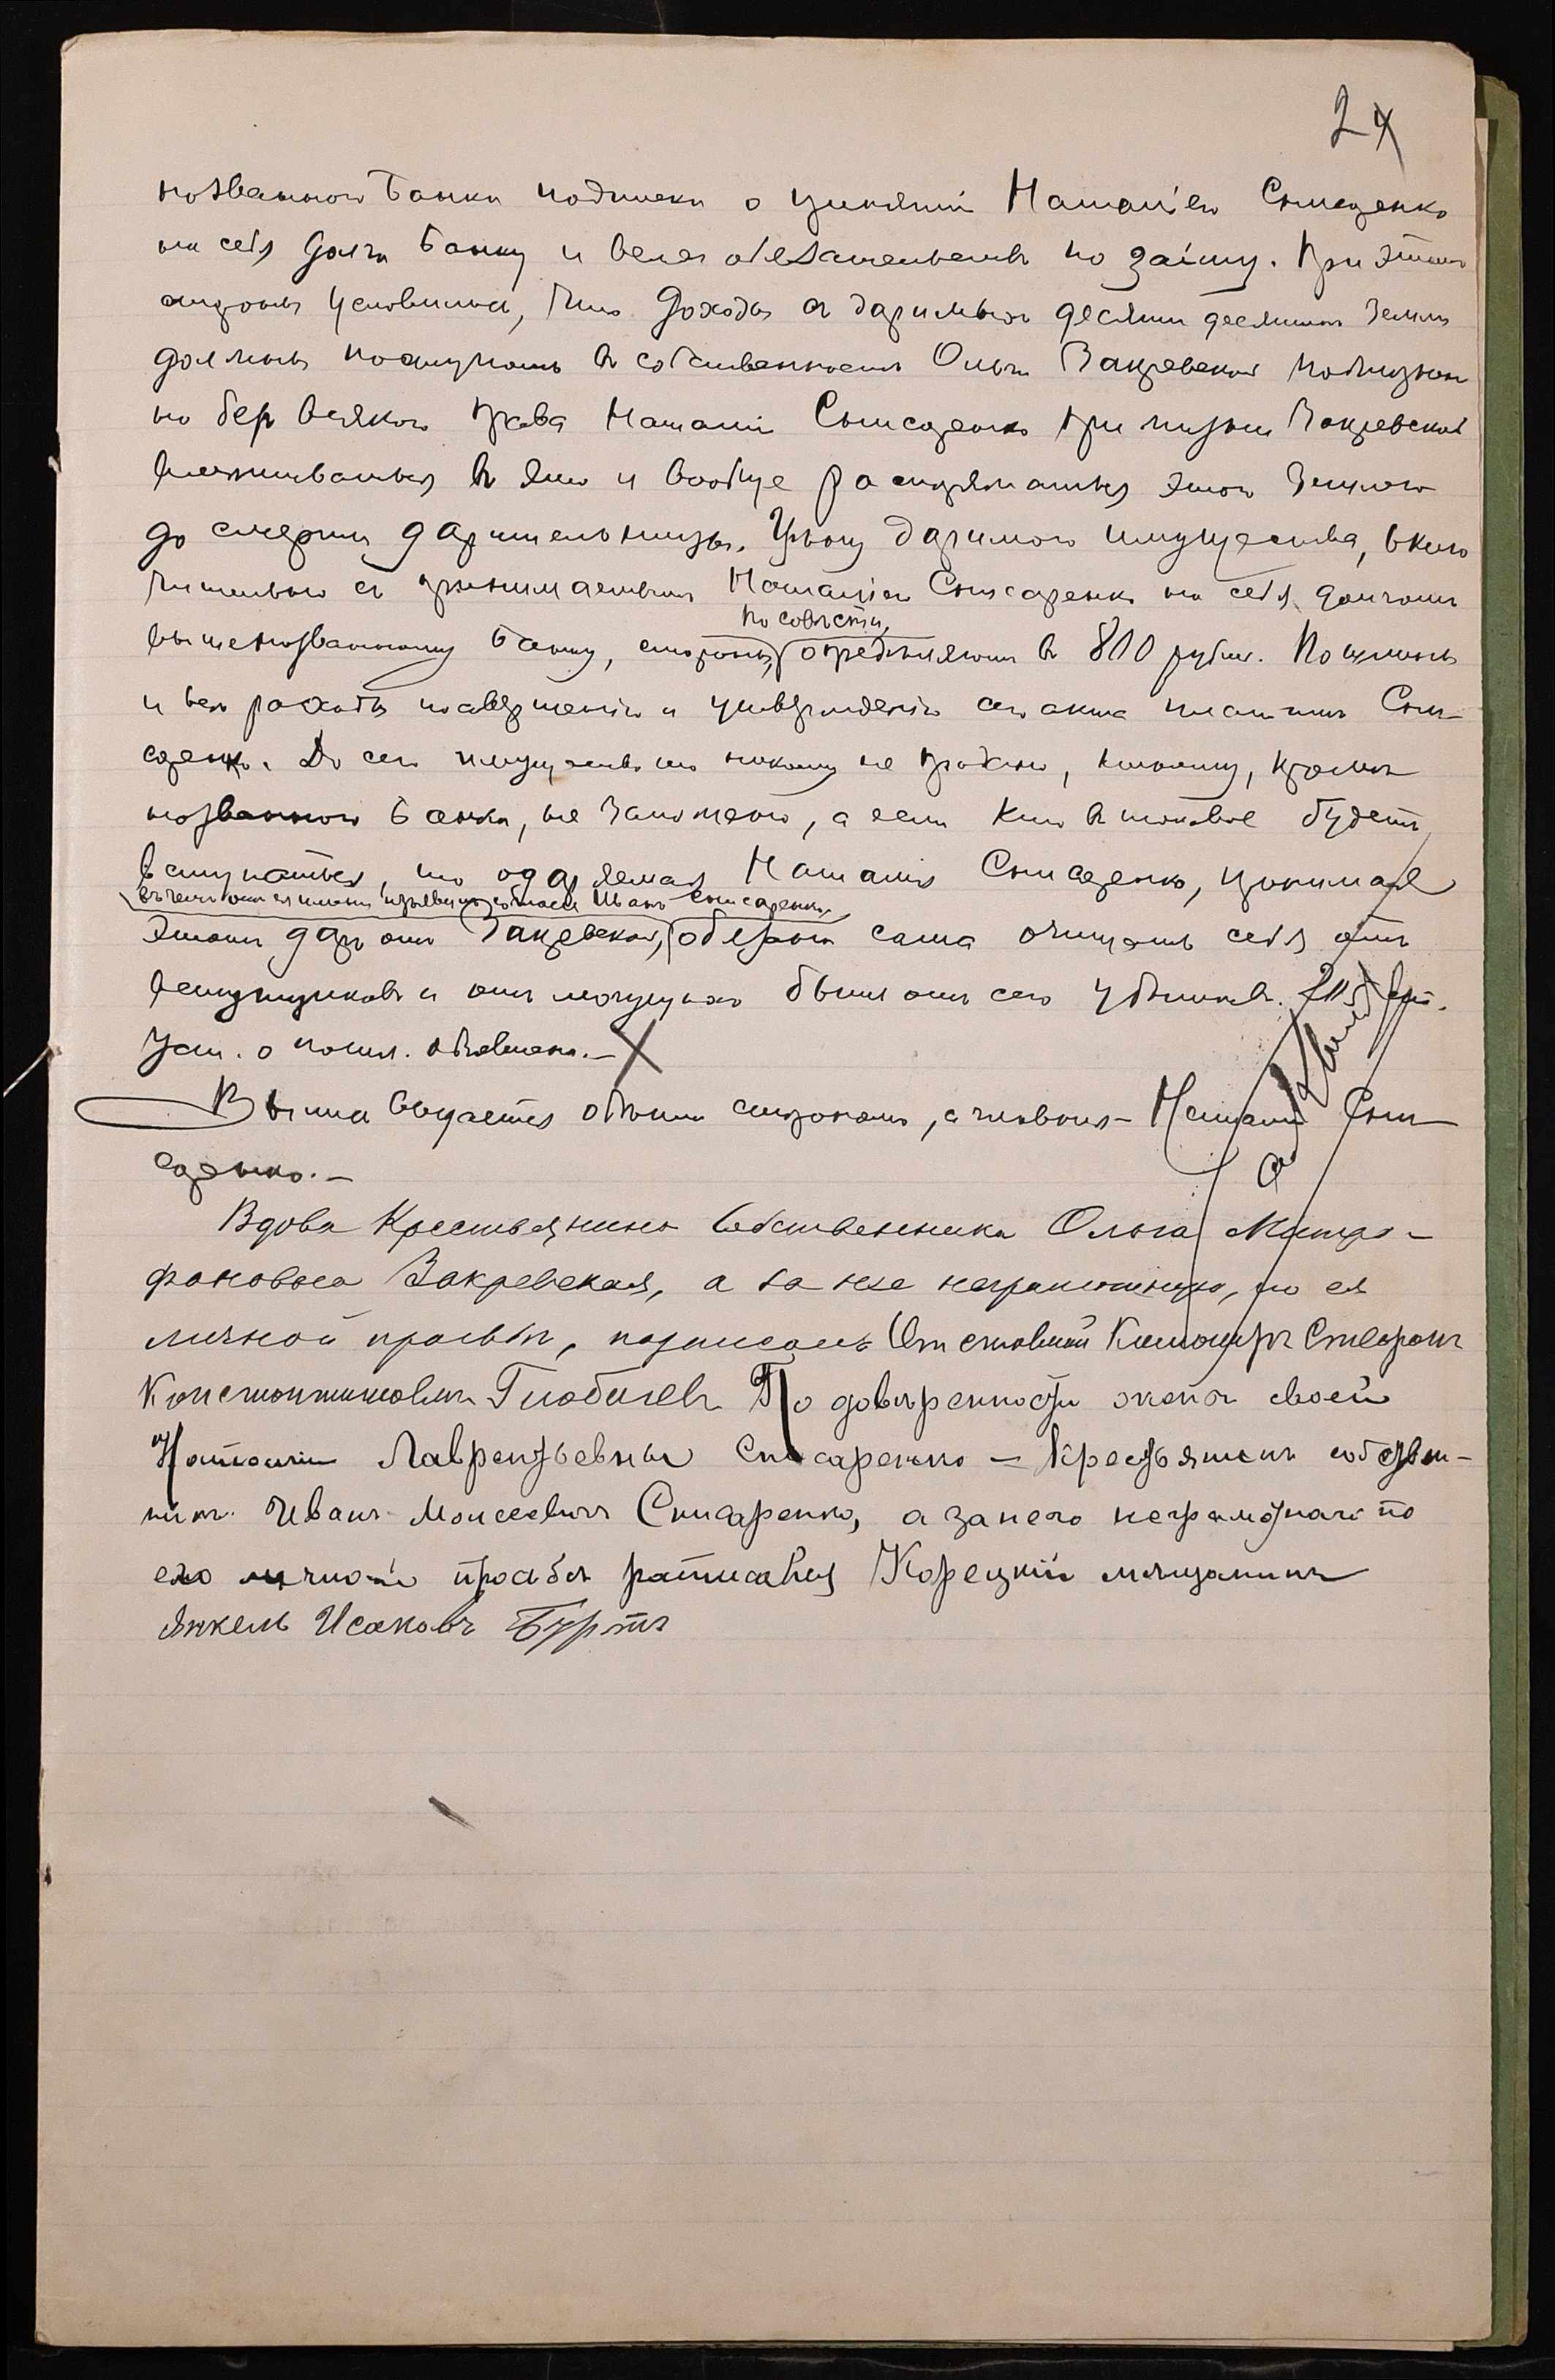 24
названнаго Банка подписки о принятіи Наталіею Снисаренко
на себя долга Банку и всех обязательствъ по займу. При этомъ
стороны условились, что доходъ съ даримыхъ десяти десятинъ земли
долженъ поступать въ собственность Ольги Закревской пожизнен
но без всякаго права Наталіи Снисаренко при жизни Закревской
вмешиваться въ это и вообще распоряжаться этою землею
до смерти дарительницы. Цѣну даримаго имущества, вклю
чительно съ принимаемымъ Наталіею Снисаренко на себя долгомъ
по совѣсти,
вышеназванному Банку, стороны определяютъ въ 800 рубл. Пошлины
и все расходы по совершенію и утвержденію сего акта платитъ Сни-
саренко. До сего имущество это никому не продано, никому, кромѣ
названнаго Банка, не заложено, а если кто въ таковое будетъ
вступаться, то одаряемая Наталія Снисаренко, принимая
въ чемъ отъ ея имени изъявилъ согласіе Иванъ Снисаренко,
этотъ даръ отъ Закревской, обязана сама очищать себя отъ
вступщиковъ и отъ могущихъ быть отъ сего убытковъ. ст.
Уст. о пошл. объявлена.-
Выпись выдается обѣимъ сторонамъ, а главная - Наталіи Сни-
саренко.-
Вдова Крестьянина Собственника Ольга Митро-
фановна Закревская, а за нее неграмотную, по ея
личной просьбѣ, подписалъ Отставной Стефанъ
Константиновичъ По довѣренности жены своей
Наталіи Лаврентьевны Снисаренко - Крестьянинъ собствен-
никъ Иванъ Моисеевичъ Снисаренко, а за него неграмотнаго по
его личной просьбѣ росписался Корецкій мѣщанинъ
Янкель Исаковъ Буртъ